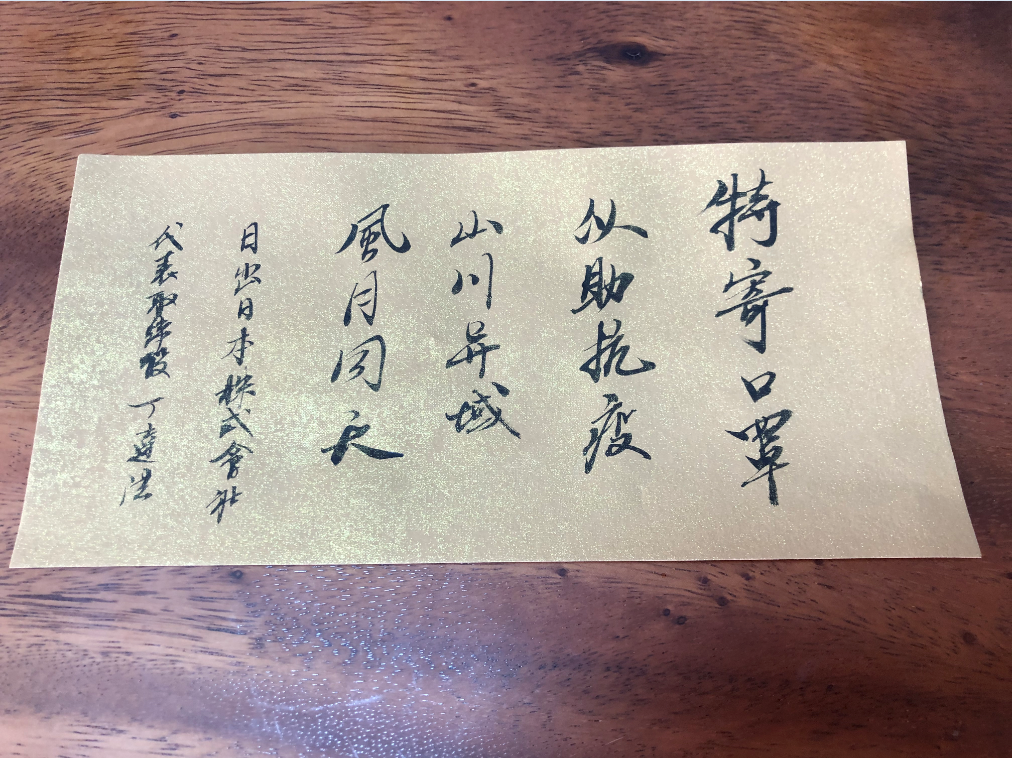 特寄口罩
以助抗疫
山川异域
風月同天
日出日本株式會社
代表取締役 丁達浩